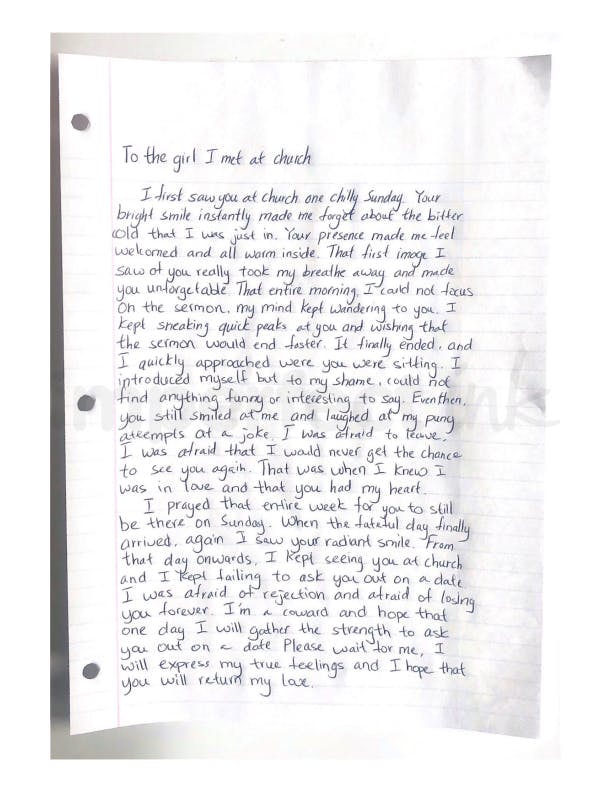 To the girl I met at church
I first saw you at church one chilly Sunday. Your
bright smile instantly made me forget about the bitter
cold that I was just in. Your presence made me feel
welcomed and all warm inside. That first image I
saw of you really took my breathe away and made
you unforgetable. That entire morning, I could not focus
on the sermon, my mind kept wandering to you. I
kept sneaking quick peaks at you and wishing that
the sermon would end faster. It finally ended, and
I quickly approached were you were sitting. I
introduced myself but to my shame, could not
find anything funny or interesting to say. Even then,
you still smiled at me and laughed at my puny
ateempts at a joke. I was afraid to leave.
I was afraid that I would never get the chance
to see you again. That was when I knew I
was in love and that you had my heart.
I prayed that entire week for you to still
be there on Sunday. When the fateful day finally
arrived, again I saw your radiant smile. From
that day onwards, I kept seeing you at church
and I kept failing to ask you out on a date.
I was afraid of rejection and afraid of losing
you forever. I'm a coward and hope that
one day I will gather the strength to ask
you out on a date Please wait for me, I
will express my true feelings and I hope that
you will return my love.